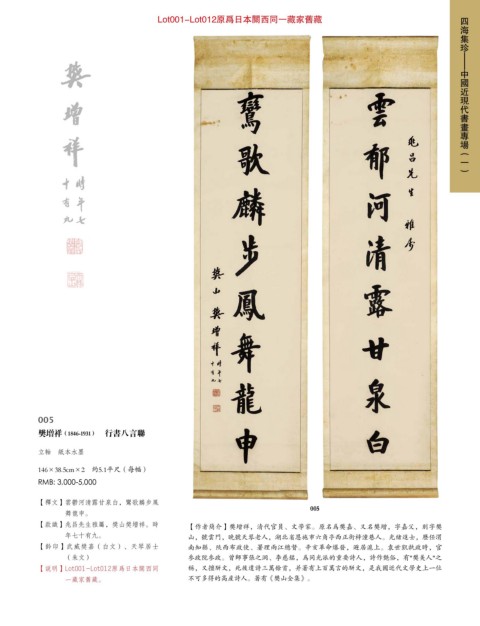 Lot001-Lot012原爲日本關西同一藏家舊藏
四海集珍——中國近現代書畫專場（一）
樊增祥
時年七
十有九
雲郁河清露甘泉白
兆呂先生 雅屬
鸞歌麟步鳳舞龍申
樊山樊增祥
時年七
十有九
005
樊增祥（1846-1931） 行書八言聯
立軸 紙本水墨
146×38.5cm×2 約5.1平尺（每幅）
RMB: 3.000-5.000
【釋文】雲郁河清露甘泉白，鸞歌麟步鳳
舞龍申。
【款識】兆呂先生雅屬，樊山樊增祥。時
年七十有九。
【鈐印】武威樊嘉（白文）、天琴居士
（朱文）
【説明】Lot001-Lot012原爲日本關西同
一藏家舊藏。
005
【作者簡介】樊增祥，清代官員、文學家。原名爲樊嘉，又名樊增，字嘉父，别字樊
山，號雲門，晚號天琴老人，湖北省恩施市六角亭西正街梓潼巷人。光緒進士，歷任渭
南知縣、陝西布政使、署理兩江總督。辛亥革命爆發，避居滬上。袁世凱執政時，官
參政院參政。曾師事張之洞、李慈銘，爲同光派的重要詩人，詩作艷俗，有“樊美人”之
稱，又擅駢文，死後遺詩三萬餘首，并著有上百萬言的駢文，是我國近代文學史上一位
不可多得的高産詩人。著有《樊山全集》。